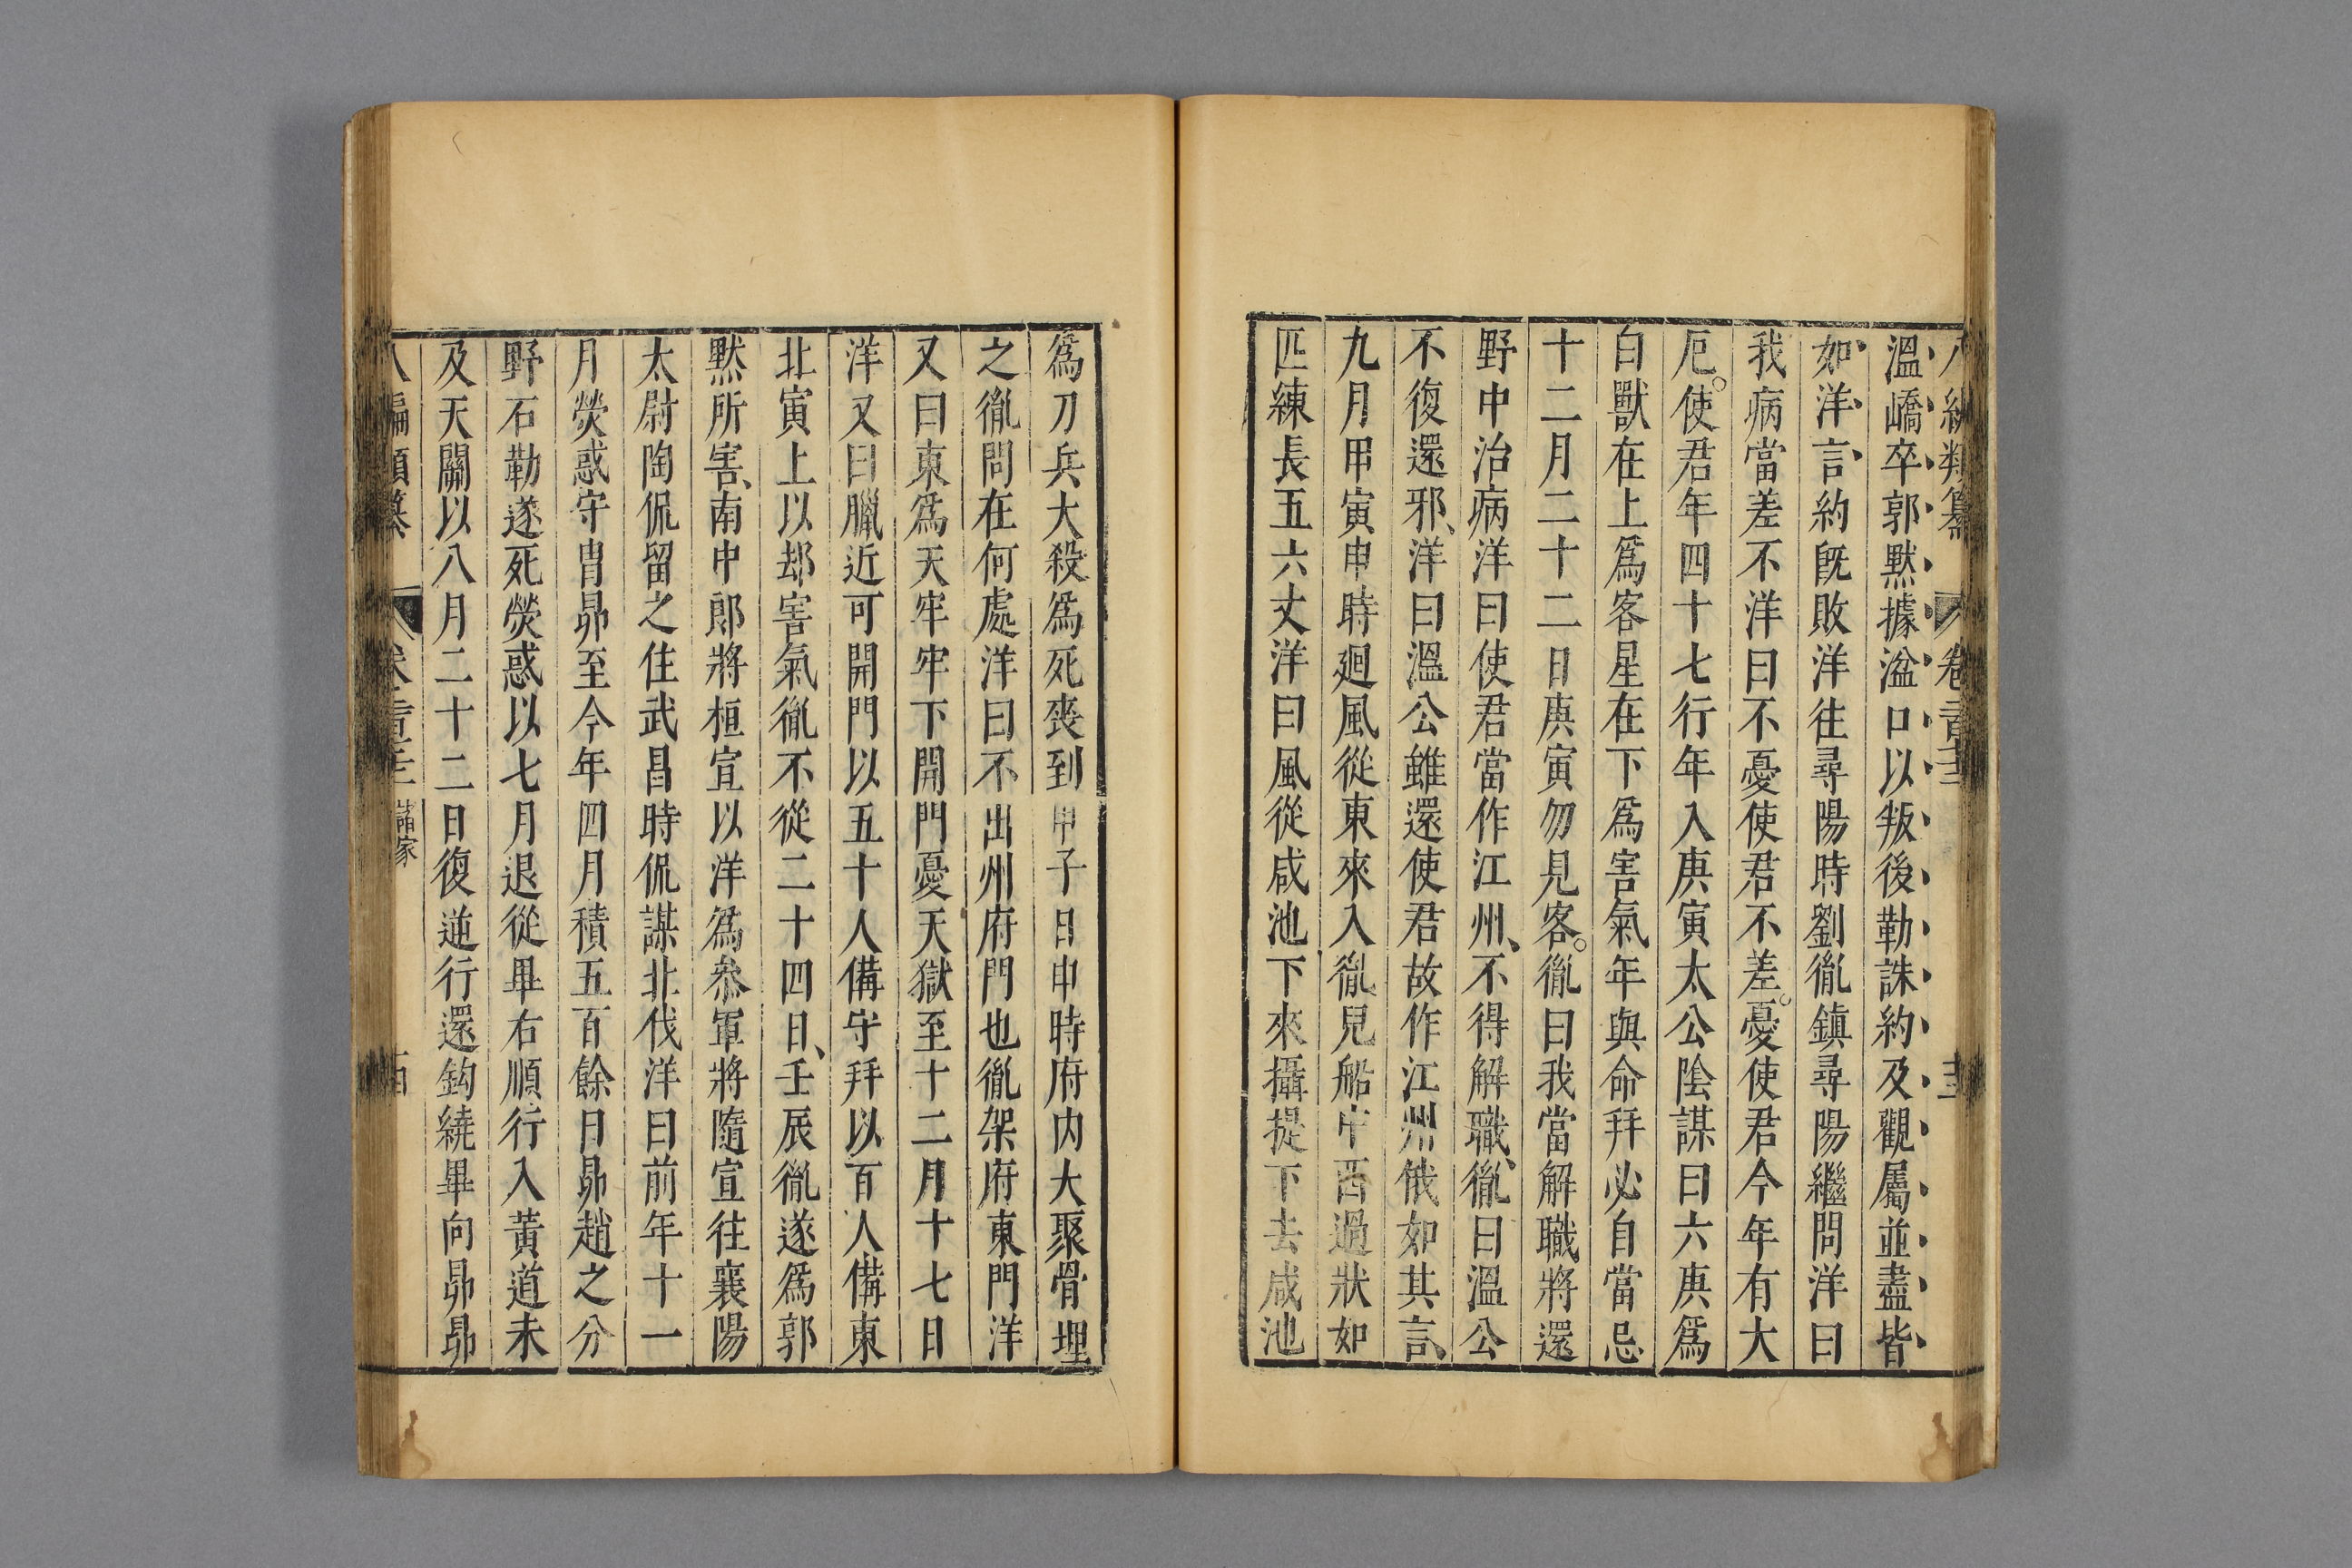 八編類纂 卷一百十三 十三
溫嶠卒郭默據湓口以叛後勒誅約及觀屬並盡皆
如洋言約既敗洋往尋陽時劉徹鎮尋陽繼問洋曰
我病當差不洋曰不憂使君不差憂使君今年有大
厄使君年四十七行年入庚寅太公陰謀曰六庚爲
白獸在上爲客星在下爲害氣年與命拜必自當忌
十二月二十二日庚寅勿見客徹曰我當解職將還
野中治病洋曰使君當作江州不得解職徹曰溫公
不復還邪洋曰溫公雖還使君故作江州俄如其言
九月甲寅申時廻風從東來入徹見船中西過狀如
匹練長五六丈洋曰風從咸池下來攝提下去咸池
爲刀兵大殺爲死喪到甲子日申時府内大聚骨埋
之徹問在何處洋曰不出州府門也徹架府東門洋
又曰東爲天牢牢下開門憂天獄至十二月十七日
洋又曰臘近可開門以五十人備守拜以百人備東
北寅上以却害氣徹不從二十四日壬辰徹遂爲郭
默所害南中郎將桓宣以洋爲叅軍將隨宣往襄陽
太尉陶侃留之住武昌時侃謀北伐洋曰前年十一
月熒惑守胄昴至今年四月積五百餘日昴趙之分
野石勒遂死熒惑以七月退從畢右順行入黃道未
及天關以八月二十二日復逆行還鈎繞畢向昴昴
八編類纂 諸家 十四